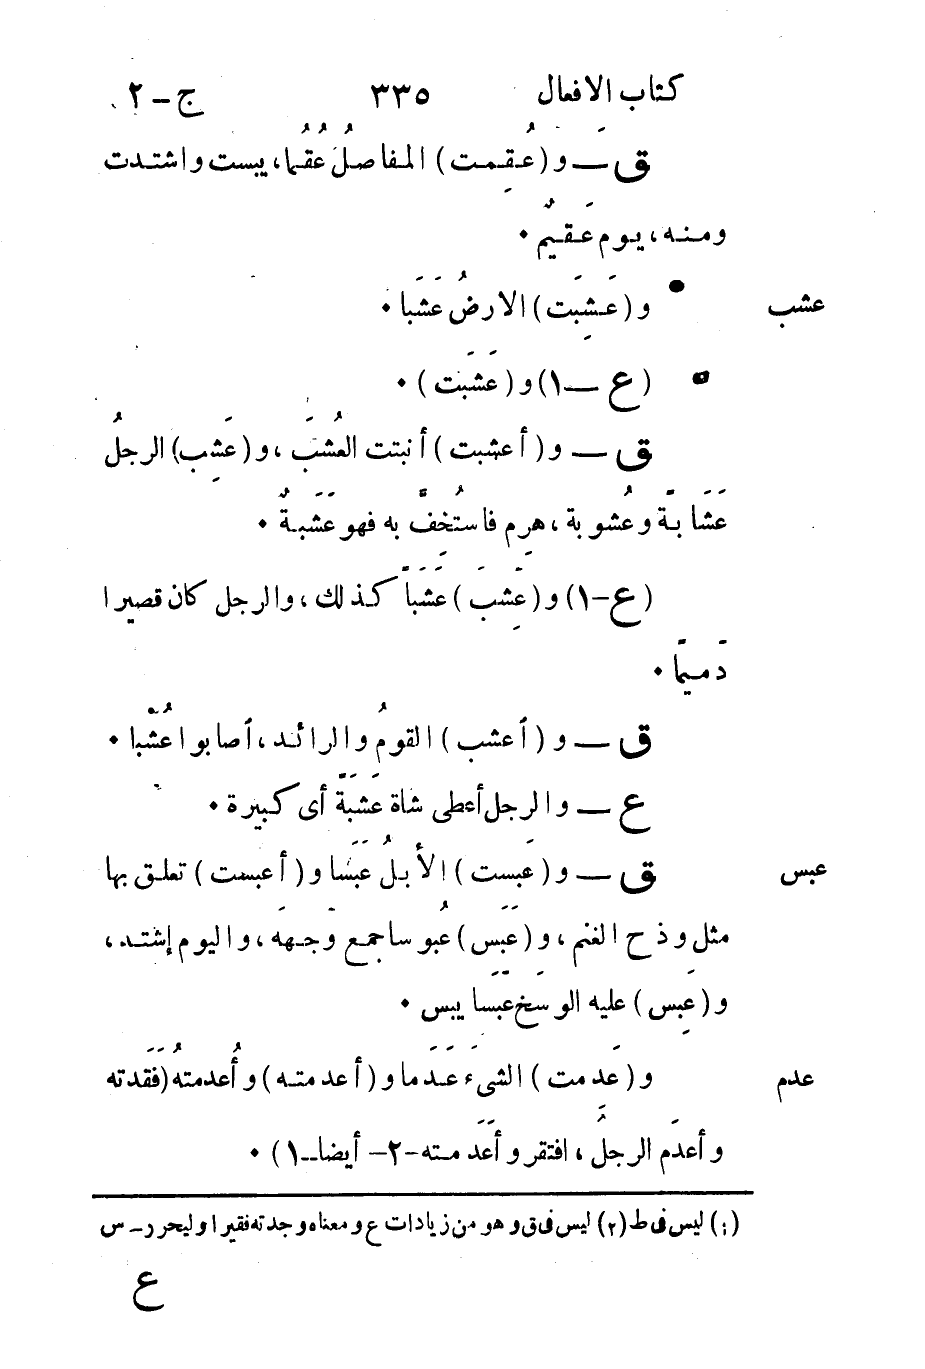 كتاب الافعال ٣٣٥ ج-٢
ق — و (عُقِمت) المفاصلُ عُقُما، يبست واشتدت
ومنه، يوم عَقيمٌ ٠
عشب • و (عَشِبَت) الارضُ عَشَبا ٠
• (ع — ١) و (عَشَبَت) ٠
ق — و (أعشبت) أنبتت العُشبَ، و (عَشِب) الرجلُ
عَشَابَةً وعُشوبة، هرِم فاستُخِفَّ به فهو عَشَبةٌ ٠
(ع-١) و (عَشِبَ) عَشَباً كذلك، والرجل كان قصيرا
دَميمًا ٠
ق — و (أعشب) القومُ والرائد، أصابوا عُشْبا ٠
ع — والرجل أعطى شاة عَشَبَةً أى كبيرة ٠
عبس ق — و (عَبست) الأبلُ عَبَسًا و (أعبست) تعلق بها
مثل وذح الغنم، و (عَبَس) عُبوسا جمع وَجهَه، واليوم إشتد،
و (عَبِس) عليه الوسَخ عَبَسا يبس ٠
عدم و (عَدِمت) الشىء عَدَما و (أعدمته) و أُعدمتُه (فَقَدته
و أعدَم الرجلُ، افتقر و أعَدَمته -٢- أيضا — ١) ٠
(١) ليس فى ط (٢) ليس فى ق وهو من زيادات ع ومعناه وجدته فقيرا وليحرر - س
ع